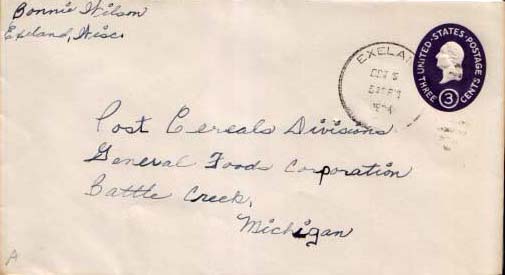 Bonnie Wilson
Exeland, Wisc.
EXELA
UNITED·STATES·POSTAGE
THREE 3 CENTS
Post Cereals Divisions
General Foods Corporation
Battle Creek,
Michigan
A